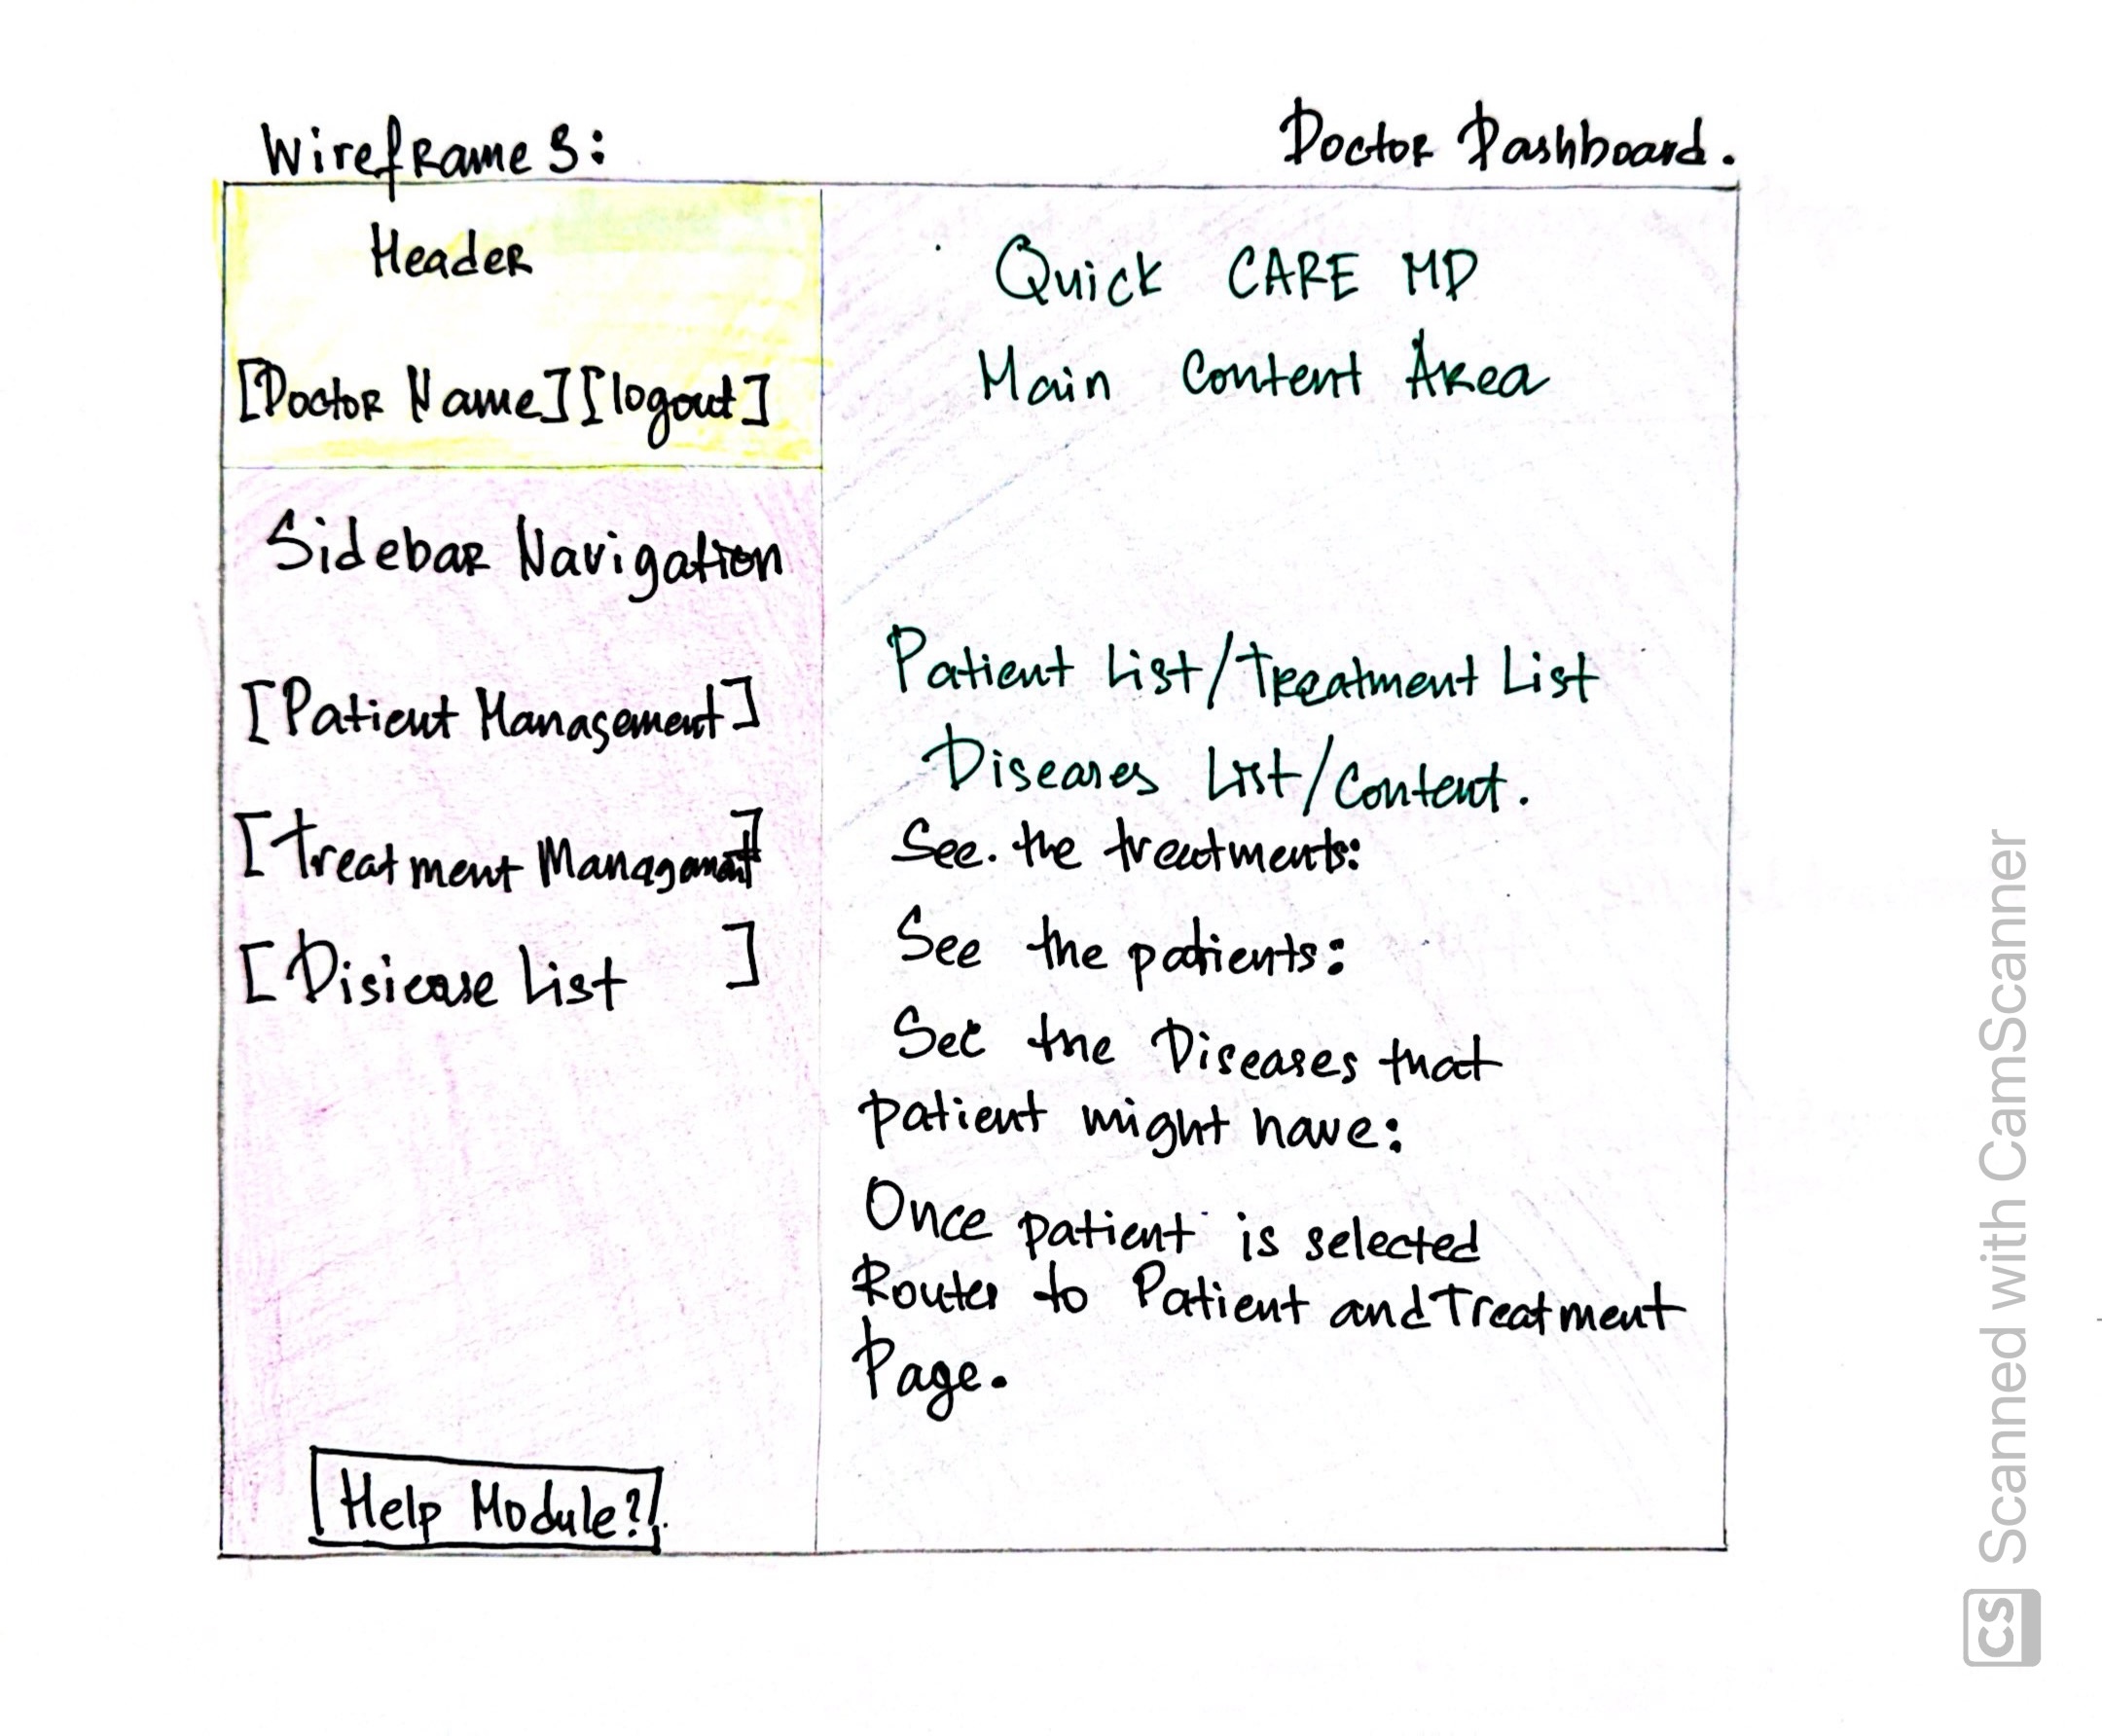 Wireframe 3:
Doctor Dashboard.
Header
[Doctor Name] [logout]
Sidebar Navigation
[Patient Management]
[Treatment Managament]
[Disiease List ]
[Help Module?]
Quick CARE MD
Main Content Area
Patient List/Treatment List
Diseases List/Content.
See. the treatments:
See the patients:
See the Diseases that
patient might have:
Once patient is selected
Routes to Patient and Treatment
Page.
CS Scanned with CamScanner